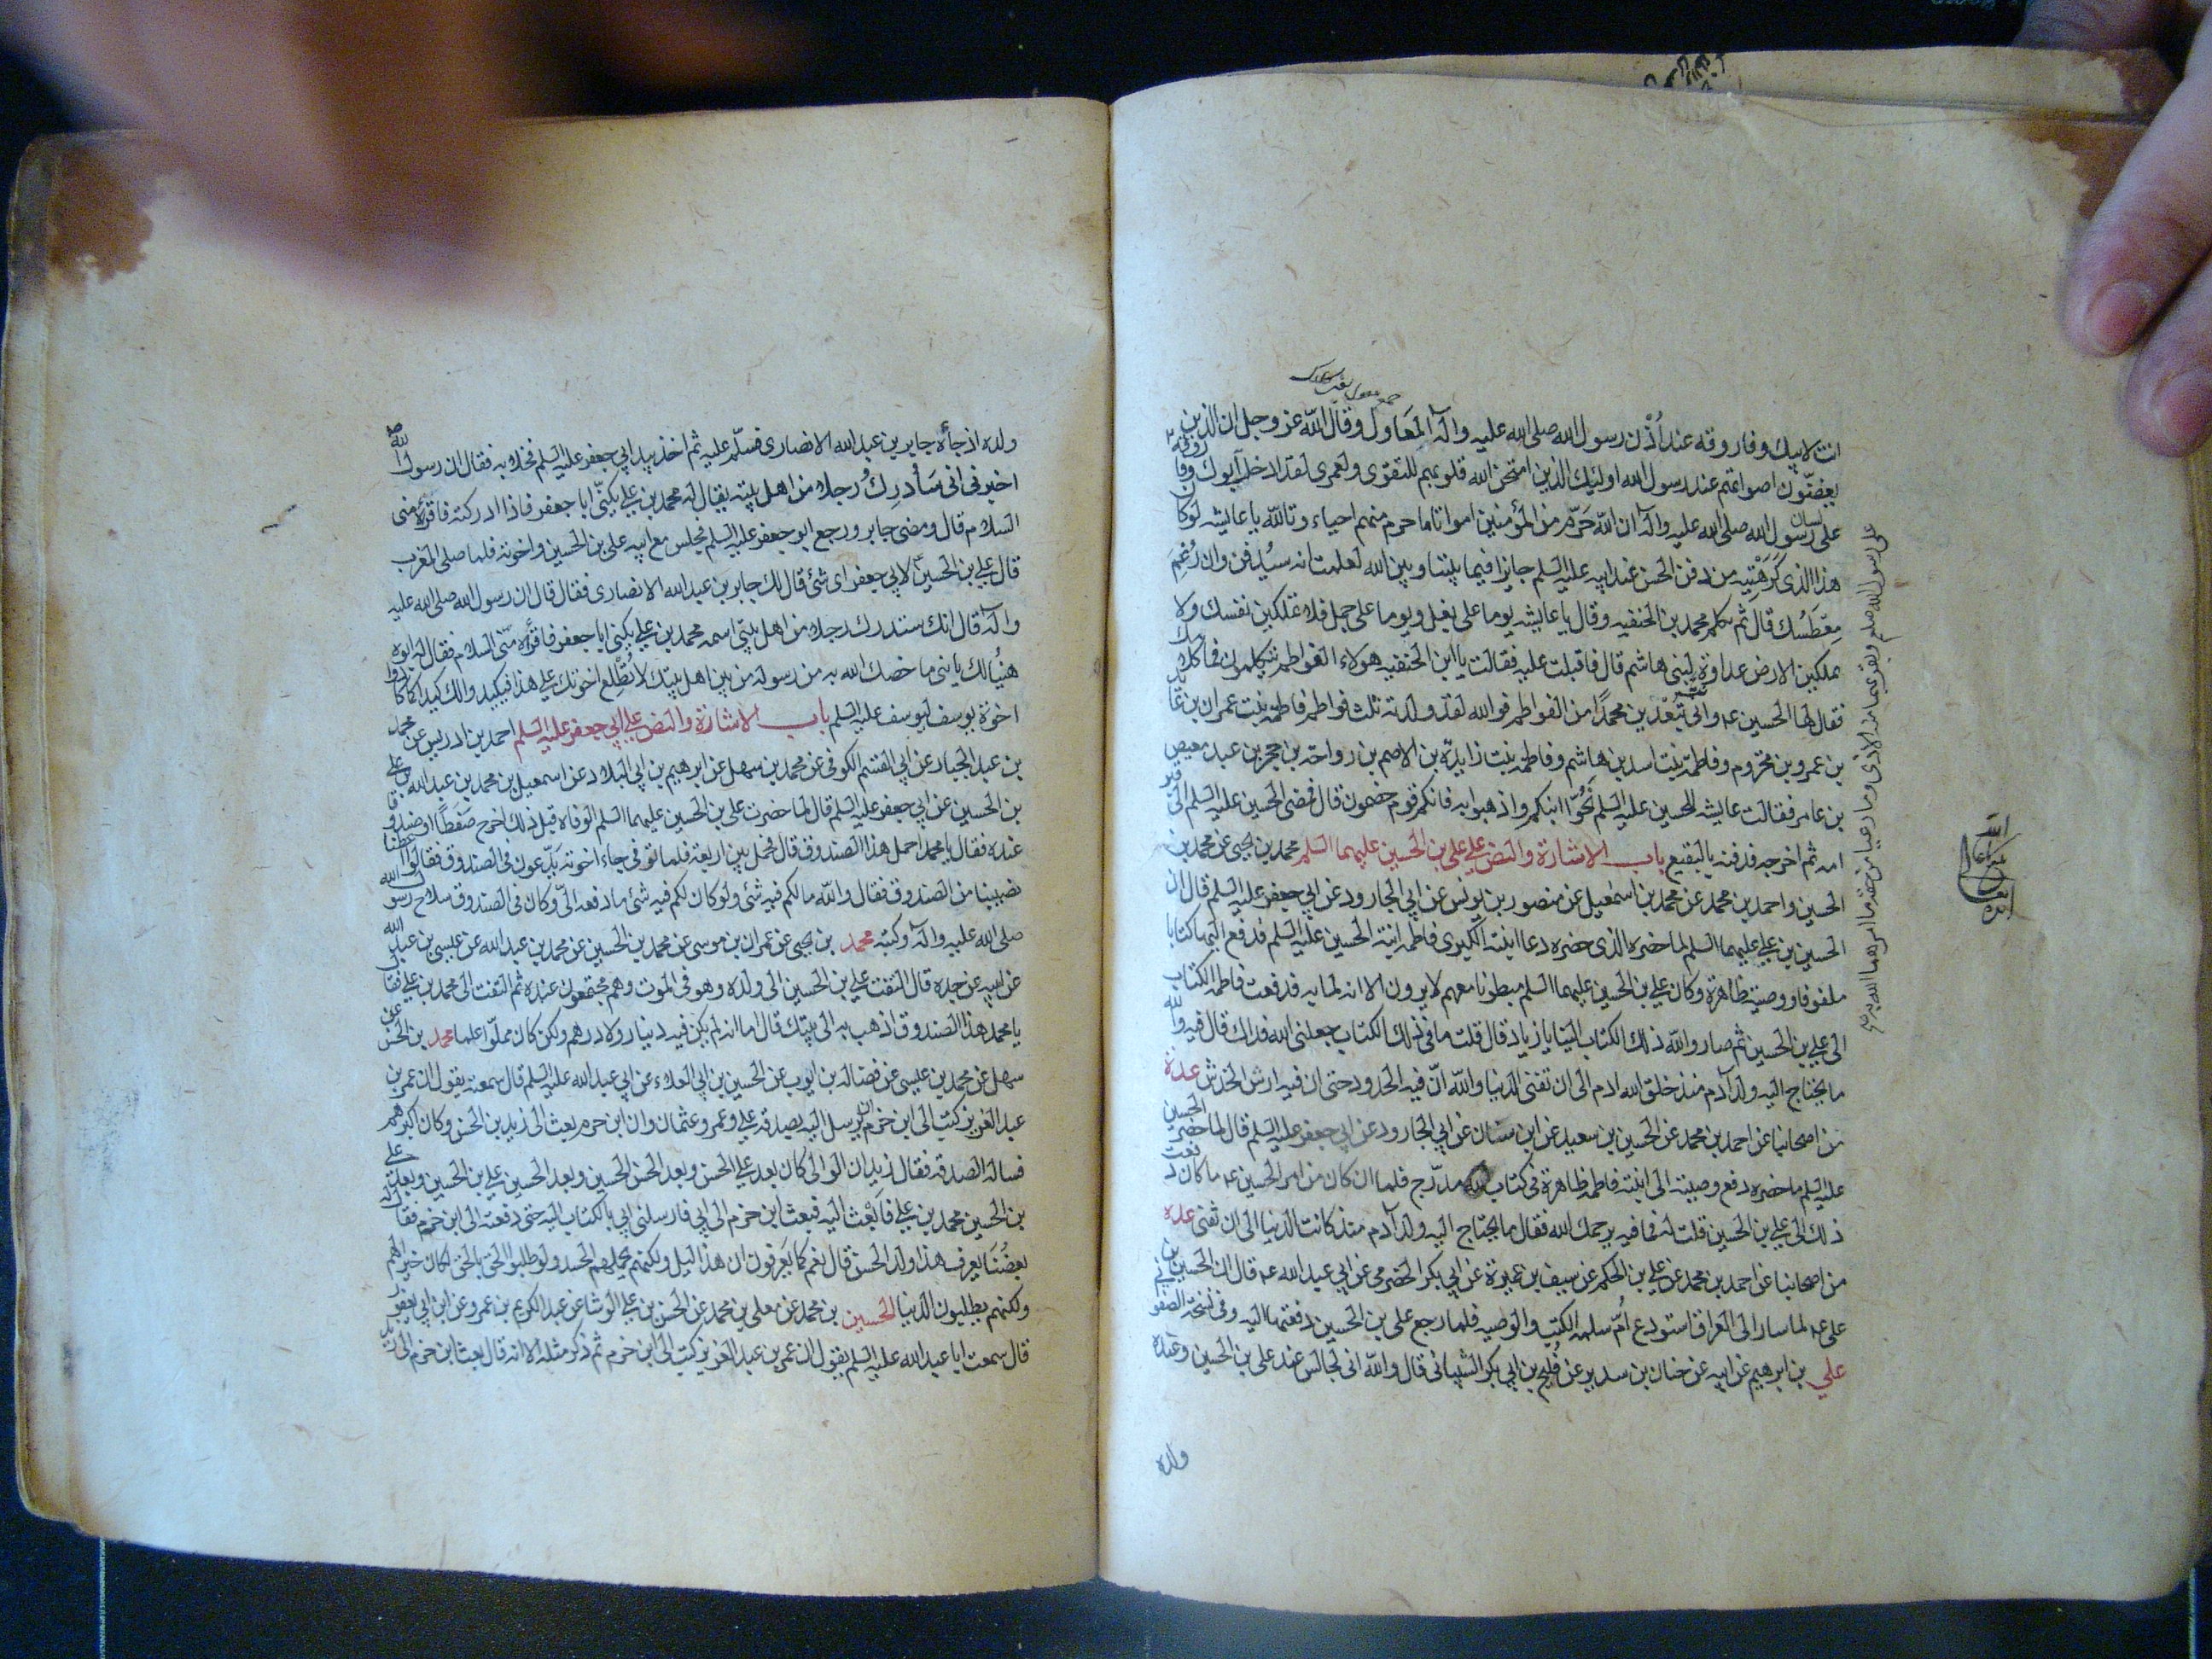 انت لابيك وفاروقه عند اُذُن رسول الله صلى الله عليه وآله المَعَاول وقال الله عز وجل ان الذين
يغضّون اصواتهم عند رسول الله اولئك الذين امتحن الله قلوبهم للتقوى ولعمرى لقد ادخل ابوك وفاروقه
على رسول الله صلى الله عليه وآله ان الله حَرّم من المؤمنين امواتا ما حرم منهم احياء وتالله يا عايشه لو كان
هذا الذى كَرِهْتِيه من دفن الحسن عند ابيه عليه السلم جايزا فيما بيننا وبين الله لعلمت انه سيُدفن وان رُغِمَ
مِعْطَسُك قال ثم تكلم محمد بن الحنفيه وقال يا عايشه يوما على بغل ويوما على جمل فلا تملكين نفسك ولا
تملكين الارض عداوة لبنى هاشم قال فاقبلت عليه فقالت يا ابن الحنفيه هولاء الفواطم يتكلمون فما كلامك
فقال لها الحسين عه وانى تُبعّدين محمدًا من الفواطم فوالله لقد ولدته ثلث فواطم فاطمة بنت عمران بن عائذ
بن عمرو بن مخزوم وفاطمة بنت اسد بن هاشم وفاطمة بنت زايدة بن الاصم بن رواحة بن حجر بن عبد معيص
بن عامر فقالت عايشه للحسين عليه السلم نَحُّوا ابنكم واذهبوا به فانكم قوم خصمون قال فمضى الحسين عليه السلم الى قبر
امه ثم اخرجه فدفنه بالبقيع باب الاشارة والنص على على بن الحسين عليهما السلم محمد بن يحيى عن محمد بن
الحسين واحمد بن محمد عن محمد بن اسمعيل عن منصور بن يونس عن ابى الجارود عن ابى جعفر عليه السلم قال ان
الحسين بن على عليهما السلم لما حضره الذى حضره دعا ابنته الكبرى فاطمه ابنة الحسين عليه السلم فدفع اليها كتابا
ملفوفا ووصية ظاهرة وكان على بن الحسين عليهما السلم مبطونا معهم لا يرون الا انه لما به فدفعت فاطمه الكتاب
الى على بن الحسين ثم صار والله ذلك الكتاب الينا يا زياد قال قلت ما فى ذلك الكتاب جعلنى الله فداك قال فيه والله
ما يحتاج اليه ولد آدم منذ خلق الله ادم الى ان تفنى الدنيا والله انّ فيه الحدود حتى ان فيه ارش الخدش عدة
من اصحابنا عن احمد بن محمد عن الحسين بن سعيد عن ابن سنان عن ابى الجارود عن ابى جعفر عليه السلم قال لما حضر الحسين
عليه السلم ما حضره دفع وصيته الى ابنته فاطمه ظاهرة فى كتاب مدرّج فلما ان كان من امر الحسين عه ما كان دفعت
ذلك الى على بن الحسين قلت له فما فيه يرحمك الله فقال ما يحتاج اليه ولد آدم منذ كانت الدنيا الى ان تفنى عده
من اصحابنا عن احمد بن محمد عن على بن الحكم عن سيف بن عميرة عن ابى بكر الحضرمى عن ابى عبد الله عه قال ان الحسين بن
على عه لما سار الى العراق استودع اُمّ سلمه الكتب والوصيه فلما رجع على بن الحسين دفعتها اليه وفى نسخة الصفوانى
على بن ابرهيم عن ابيه عن حنان بن سدير عن فُليح بن ابى بكر الشيبانى قال والله انى لجالس عند على بن الحسين وعنده
ولده
ولده اذ جاءه جابر بن عبد الله الانصارى فسلّم عليه ثم اخذ بيد ابى جعفر عليه السلم فخلا به فقال ان رسول الله
اخبرنى انى سَأُدرِكُ رجلا من اهل بيته يقال له محمد بن على يكنّى ابا جعفر فاذا ادركته فاقرئه منى
السلام قال ومضى جابر ورجع ابو جعفر عليه السلم فجلس مع ابيه على بن الحسين واخوته فلما صلى المغرب
قال على بن الحسين لابى جعفر اى شئ قال لك جابر بن عبد الله الانصارى فقال قال ان رسول الله صلى الله عليه
وآله قال انك ستدرك رجلا من اهل بيتى اسمه محمد بن على يكنى ابا جعفر فاقرأه منّى السلام فقال له ابوه
هنيئًا لك يا بنى ما خصك الله به من رسوله من بين اهل بيتك لا تُطْلِع اخوتك على هذا فيكيدوا لك كيدا كما كادوا
اخوة يوسف ليوسف عليه السلم باب الاشارة والنص على ابى جعفر عليه السلم احمد بن ادريس عن محمد
بن عبد الجبار عن ابى القسم الكوفى عن محمد بن سهل عن ابرهيم بن ابى البلاد عن اسمعيل بن محمد بن عبد الله بن على
بن الحسين عن ابى جعفر عليه السلم قال لما حضرت على بن الحسين عليهما السلم الوفاه قبل ذلك اخرج سفطًا او صندوقا
عنده فقال يا محمد احمل هذا الصندوق قال فحمل بين اربعة فلما توفى جاء اخوته يدّعون فى الصندوق فقالوا اعطنا
نصيبنا من الصندوق فقال والله ما لكم فيه شئ ولو كان لكم فيه شئ ما دفعه الىّ وكان فى الصندوق سلاح رسول الله
صلى الله عليه وآله وكتبه محمد بن يحيى عن عمران بن موسى عن محمد بن الحسين عن محمد بن عبد الله عن عيسى بن عبد الله
عن ابيه عن جده قال التفت على بن الحسين الى ولده وهو فى الموت وهم مجتمعون عنده ثم التفت الى محمد بن على فقال
يا محمد هذا الصندوق اذهب به الى بيتك قال اما انه لم يكن فيه دينار ولا درهم ولكن كان مملوّا علما محمد بن الحسن عن
سهل عن محمد بن عيسى عن فضالة بن ايوب عن الحسين بن ابى العلاء عن ابى عبد الله عليه السلم قال سمعته يقول ان عمر بن
عبد العزيز كتب الى ابن حزم ان يرسل اليه بصدقة على وعمر وعثمان وان ابن حزم بعث الى زيد بن الحسن وكان اكبرهم
فساله الصدقة فقال زيد ان الوالى كان بعد على الحسن وبعد الحسن الحسين وبعد الحسين على بن الحسين وبعد على
بن الحسين محمد بن على فابعث اليه فبعث ابن حزم الى ابى فارسلنى ابى بالكتاب اليه حتى دفعته الى ابن حزم فقال له
بعضُنَا يعرف هذا ولد الحسن قال نعم كما يَعرفون ان هذا ليل ولكنهم يحملهم الحسد ولو طلبوا الحق بالحق لكان خيرا لهم
ولكنهم يطلبون الدنيا الحسين بن محمد عن معلى بن محمد عن الحسن بن على الوشا عن عبد الكريم بن عمرو عن ابن ابى يعفور
قال سمعت ابا عبد الله عليه السلم يقول ان عمر بن عبد العزيز كتب الى ابن حزم ثم ذكر مثله الا انه قال بعث ابن حزم الى زيد